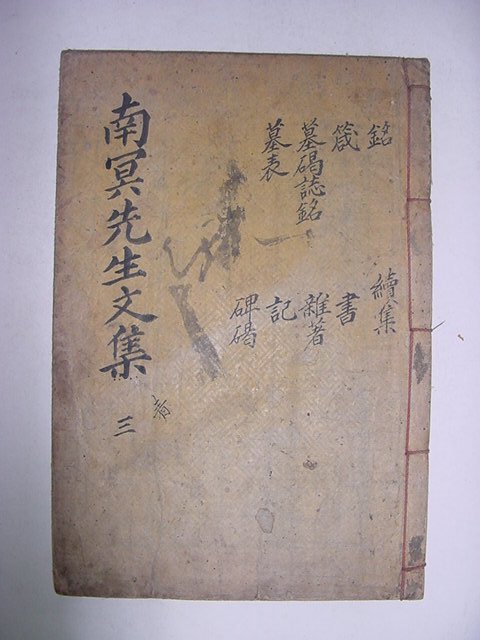 南冥先生文集 三
銘
箴
墓碣誌銘
墓表
續集
書
雜著
記
碑碣